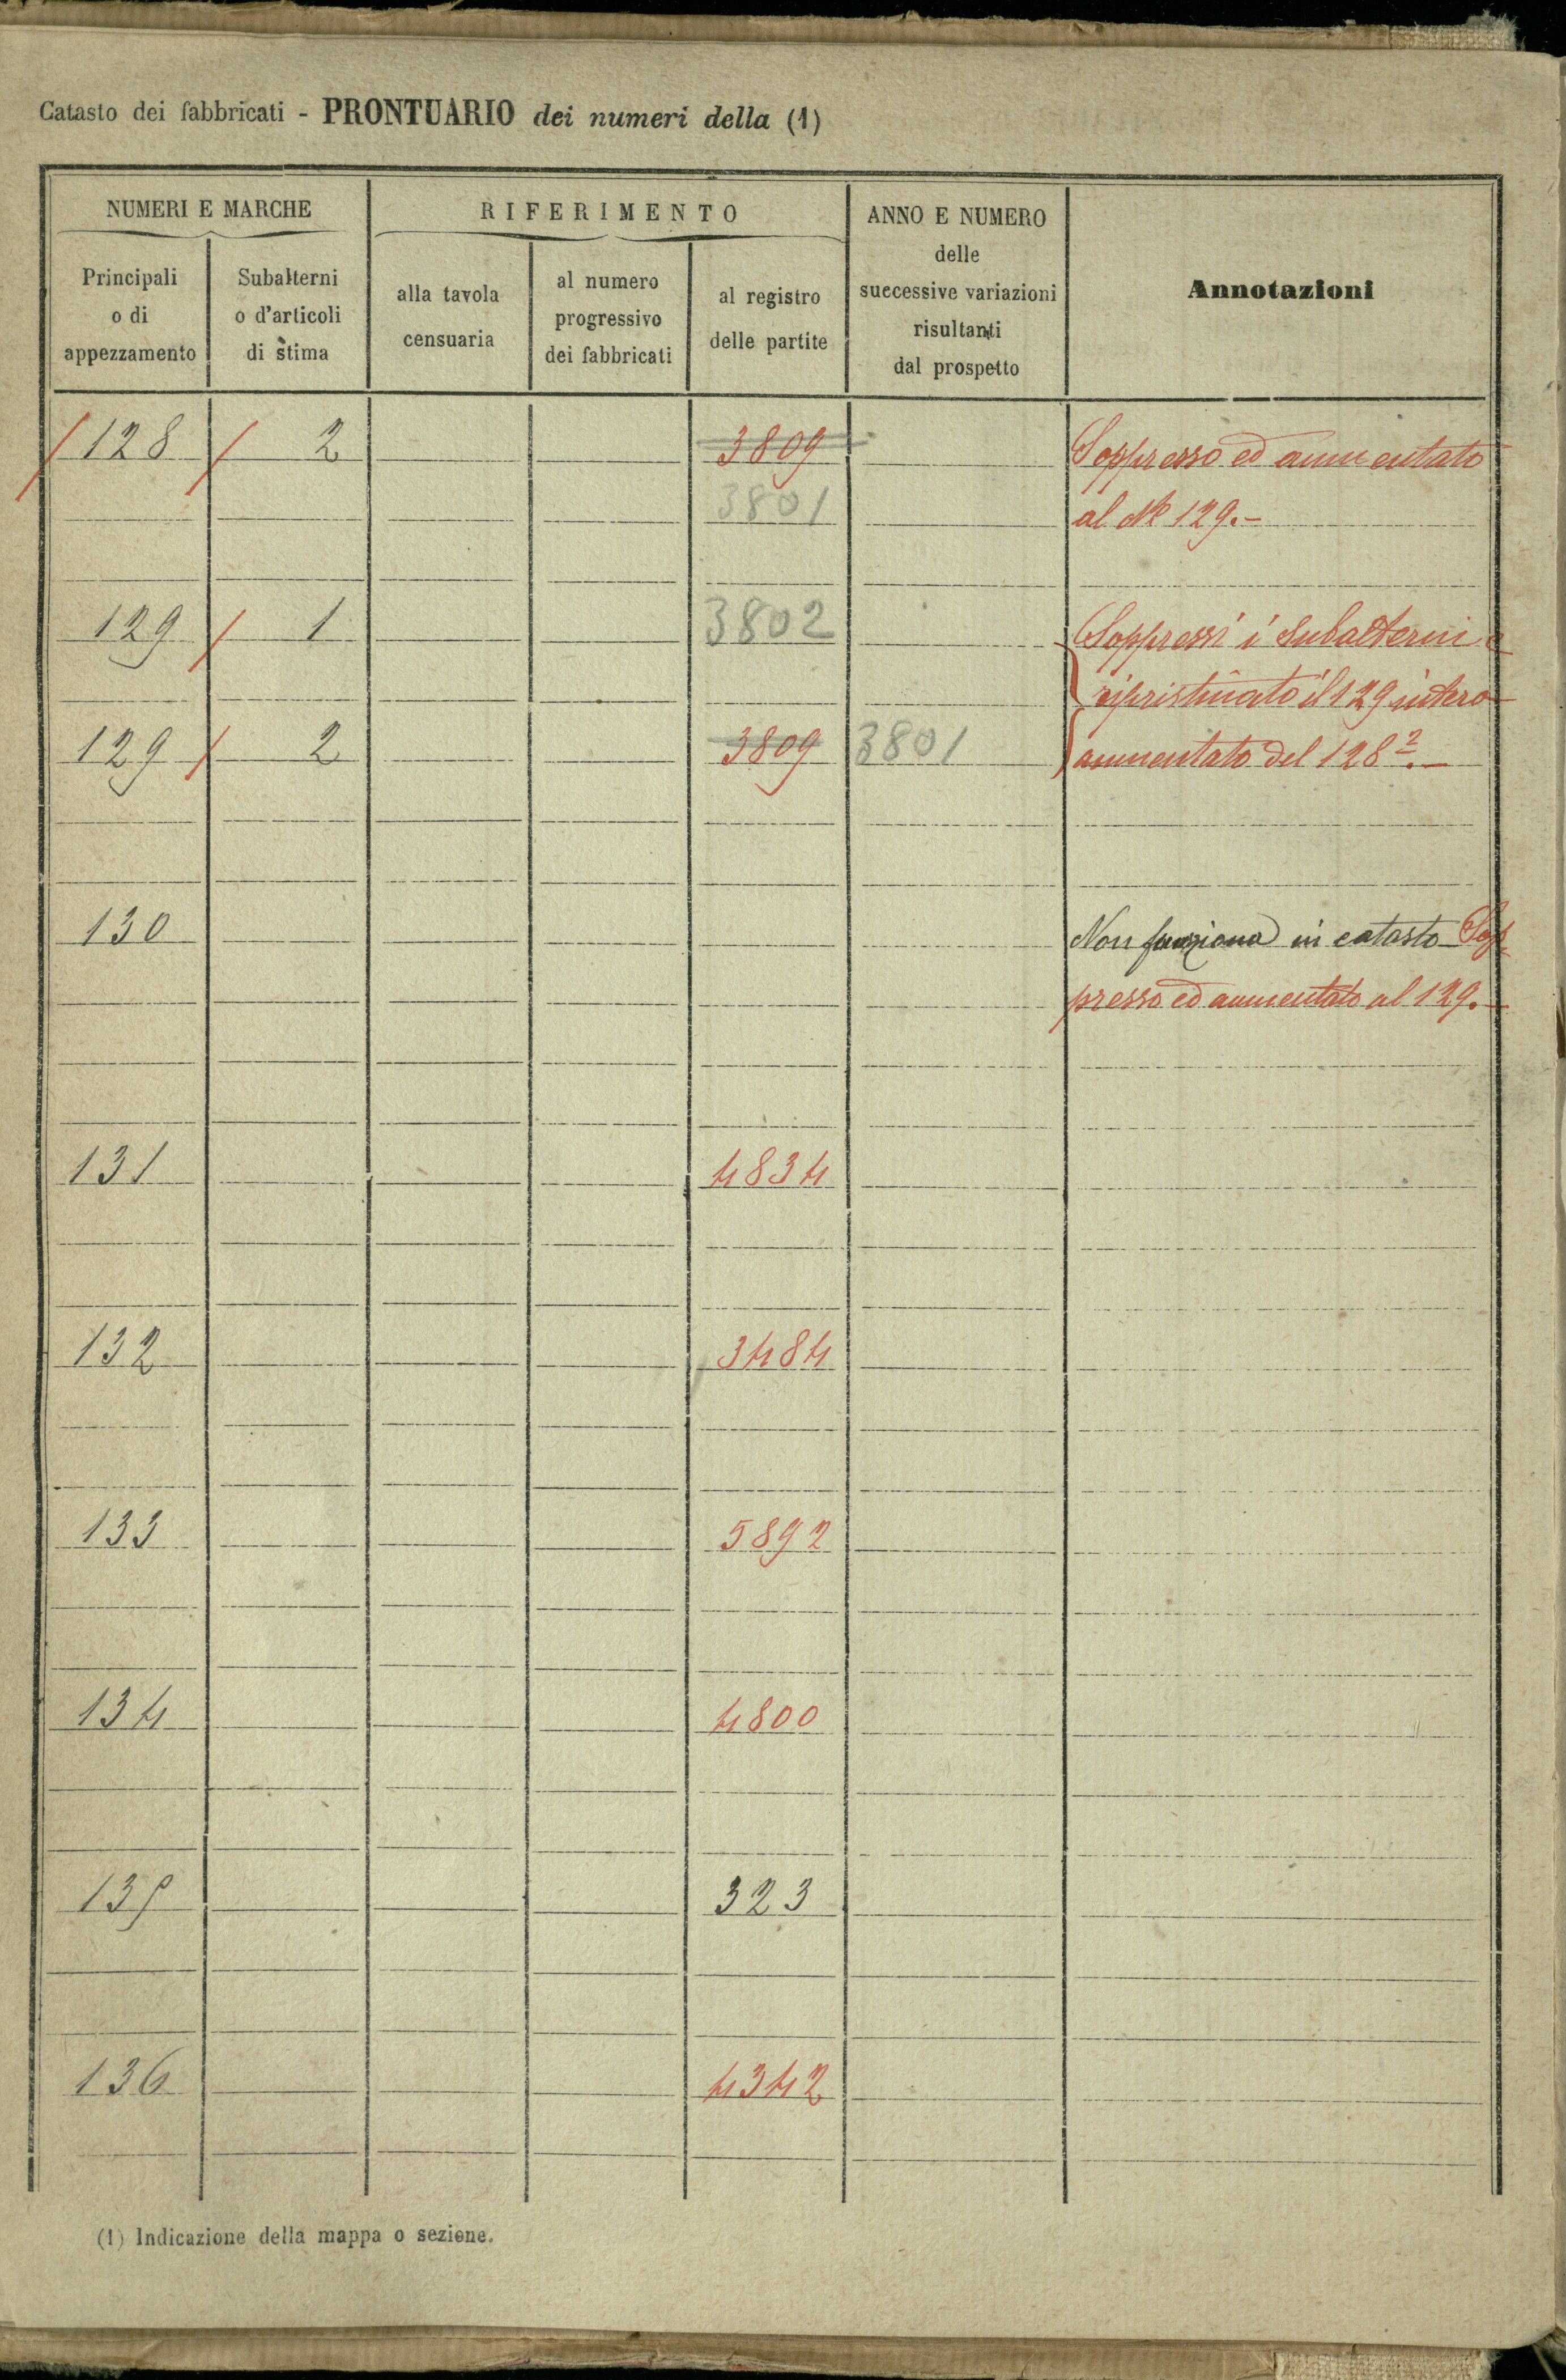 Catasto dei fabbricati - PRONTUARIO dei numeri della (1)
NUMERI E MARCHE
RIFERIMENTO
ANNO E NUMERO
delle
successive variazioni
risultanti
dal prospetto
Annotazioni
Principali
o di
appezzamento
Subalterni
o d'articoli
di stima
alla tavola
censuaria
al numero
progressivo
dei fabbricati
al registro
delle partite
/ 128 / 2 3809 Soppresso ed aumentato
3801 al No 129.-
129 / 1 3802 Soppressi i subalterni e
ripristinato il 129 intero
129 / 2 3809 3801 aumentato del 128 2.-
130 Non funziona in catasto Sop
presso ed aumentato al 129.-
131 4834
132 3484
133 5892
134 4800
135 323
136 4342
(1) Indicazione della mappa o sezione.